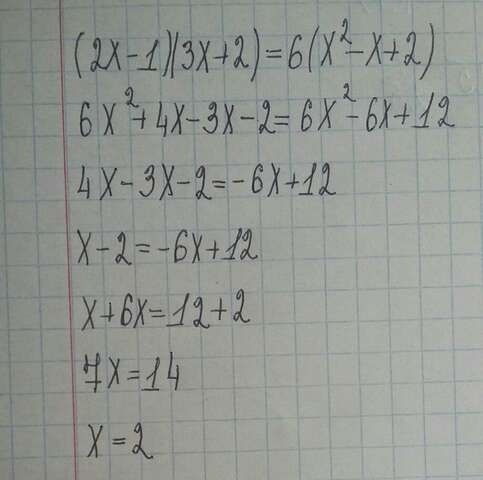 (2x-1)(3x+2)=6(x²-x+2)
6x²+4x-3x-2=6x²-6x+12
4x-3x-2=-6x+12
x-2=-6x+12
x+6x=12+2
7x=14
x=2